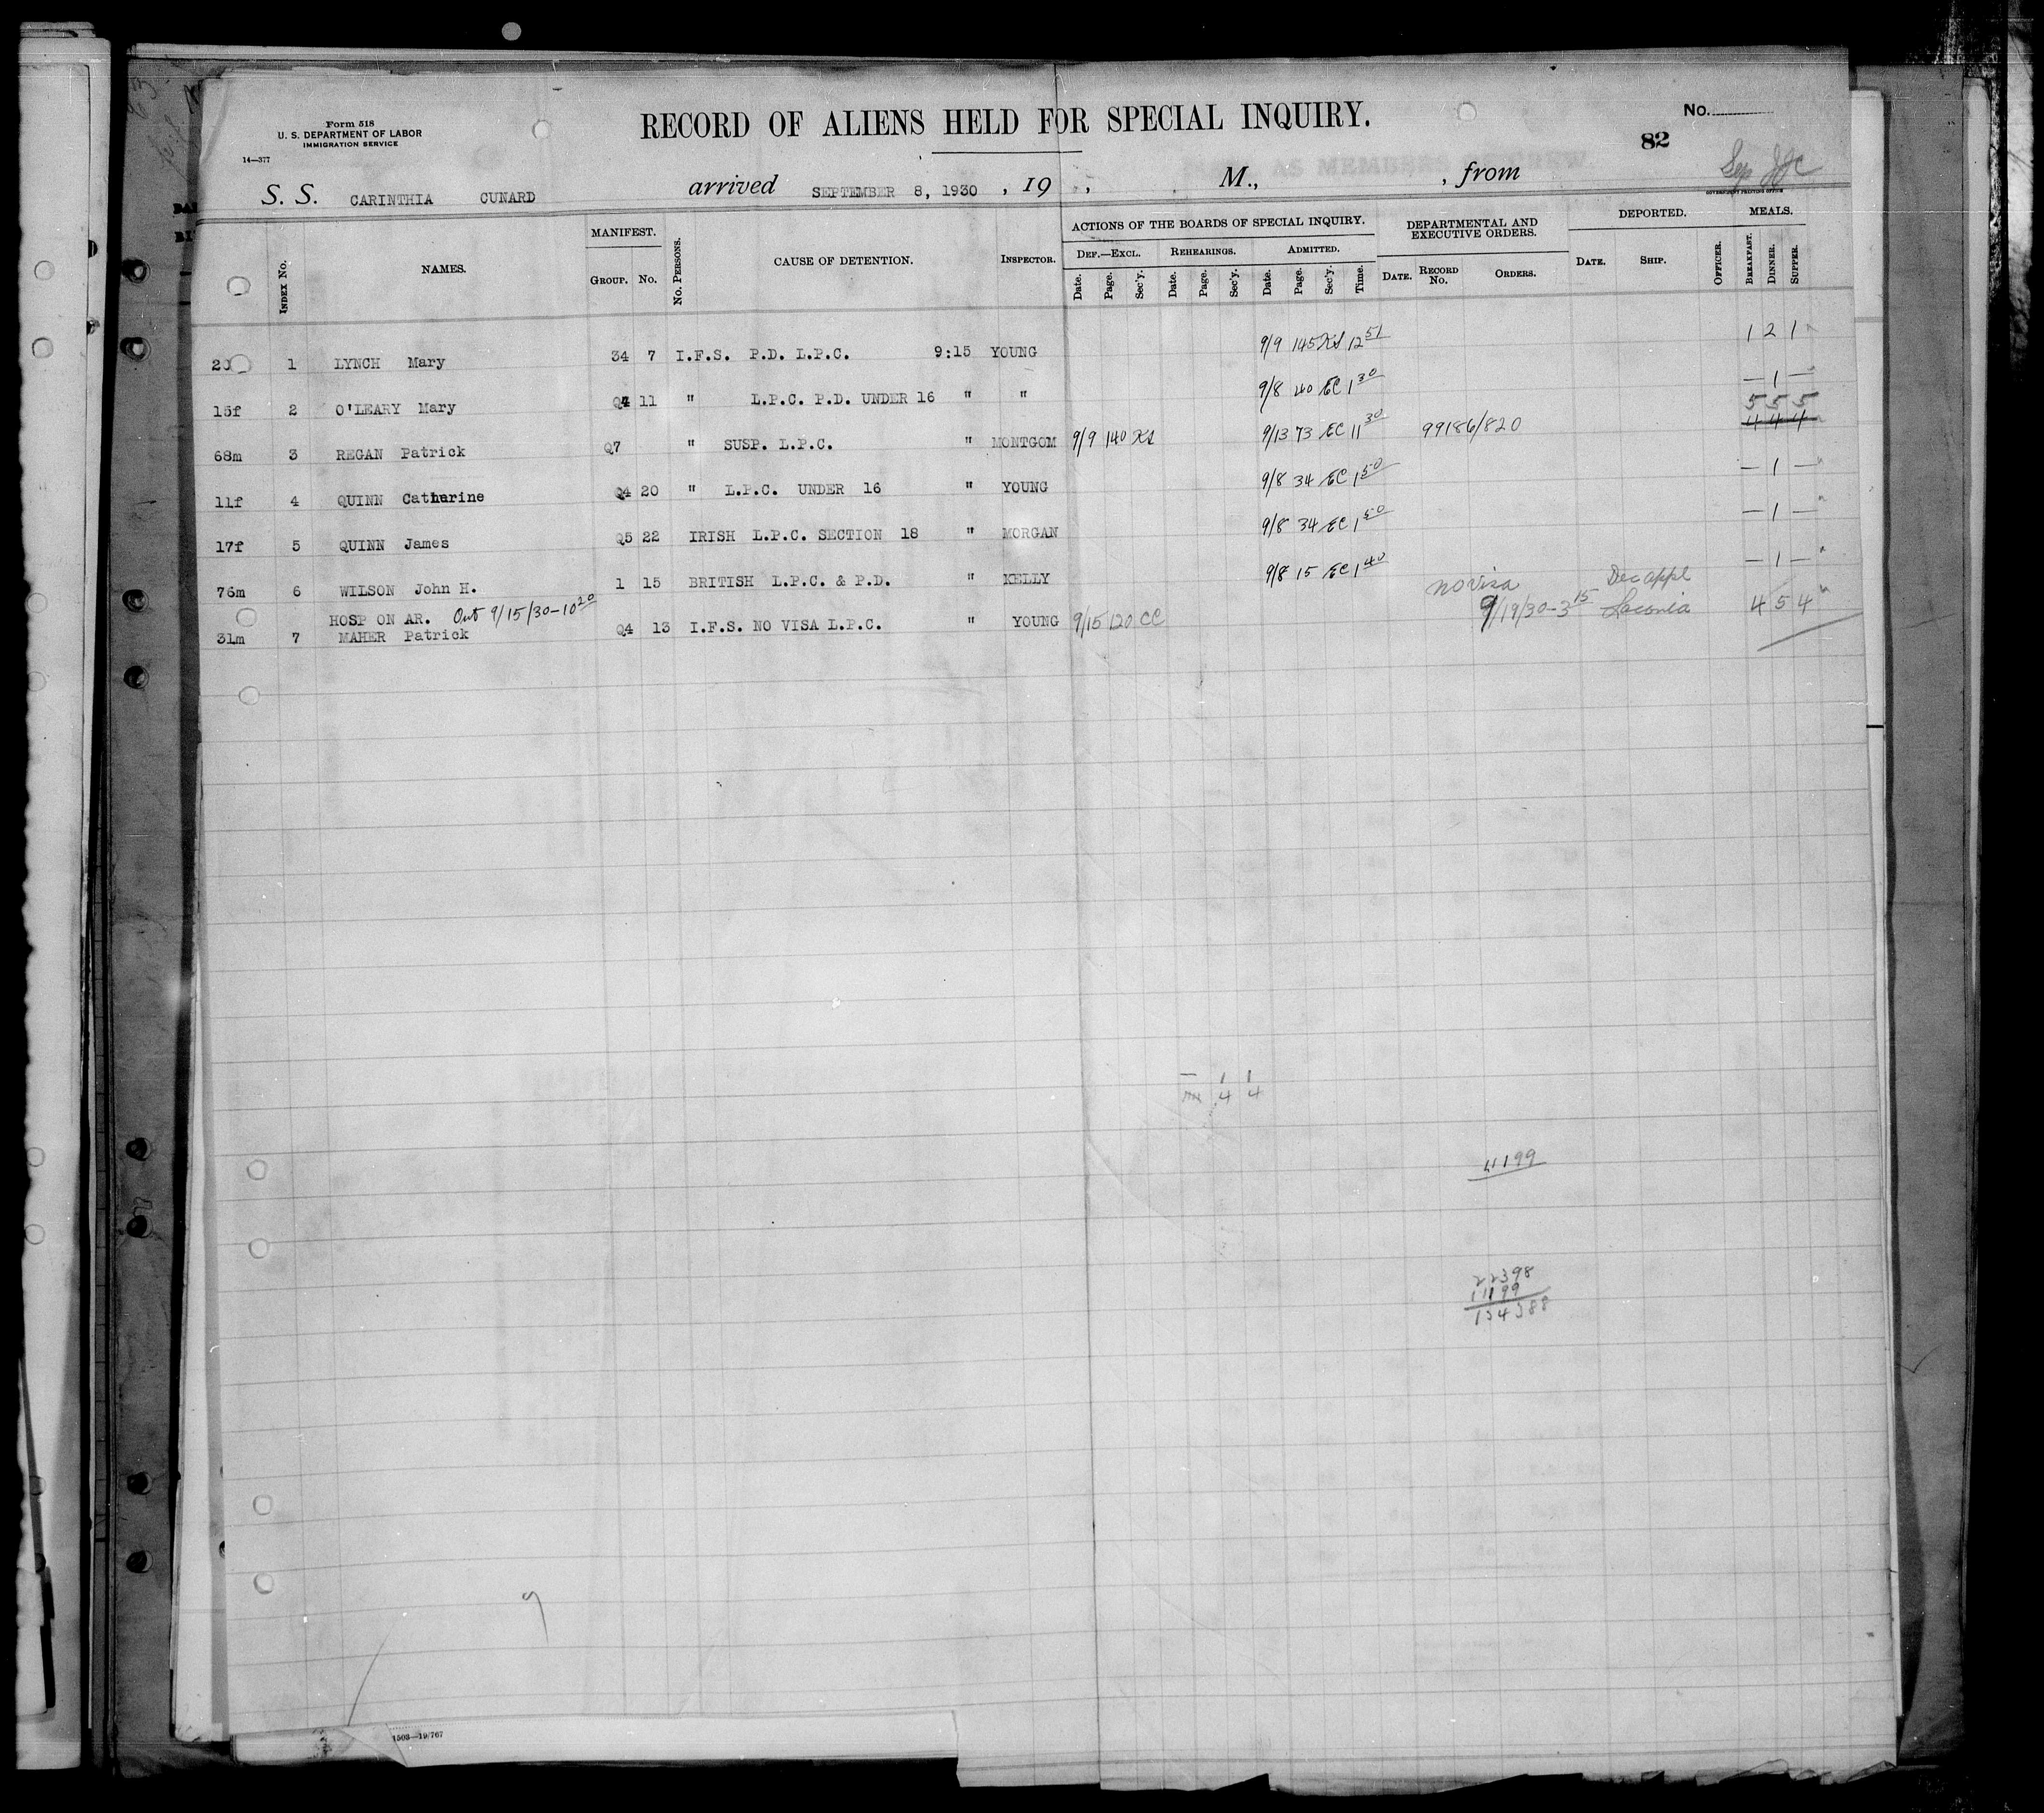 Form 518
U. S. DEPARTMENT OF LABOR
IMMIGRATION SERVICE
14—377
RECORD OF ALIENS HELD FOR SPECIAL INQUIRY.
No.
82
S. S. CARINTHIA CUNARD arrived SEPTEMBER 8, 1930 , 19 , M., , from
GOVERNMENT PRINTING OFFICE
Index No. NAMES. MANIFEST. Group. No. No. Persons. CAUSE OF DETENTION. Inspector. ACTIONS OF THE BOARDS OF SPECIAL INQUIRY. DEPARTMENTAL AND EXECUTIVE ORDERS. DEPORTED. MEALS.
Def.—Excl. Rehearings. Admitted.
Date. Page. Sec'y. Date. Page. Sec'y. Date. Page. Sec'y. Time. Date. Record No. Orders. Date. Ship. Officer. Breakfast. Dinner. Supper.
20 1 LYNCH Mary 34 7 I.F.S. P.D. L.P.C. 9:15 YOUNG 9/9 145 KS 12 51 1 2 1
15f 2 O'LEARY Mary Q4 11 " L.P.C. P.D. UNDER 16 " " 9/8 40 EC 1 30 — 1 —
5 5 5
68m 3 REGAN Patrick Q7 " SUSP. L.P.C. " MONTGOM 9/9 140 KS 9/13 73 EC 11 30 99186/820 4 4 4
11f 4 QUINN Catherine Q4 20 " L.P.C. UNDER 16 " YOUNG 9/8 34 EC 1 50 — 1 —
17f 5 QUINN James Q5 22 IRISH L.P.C. SECTION 18 " MORGAN 9/8 34 EC 1 50 — 1 —
76m 6 WILSON John H. 1 15 BRITISH L.P.C. & P.D. " KELLY 9/8 15 EC 1 40 — 1 —
HOSP ON AR. Out 9/15/30-10 20 no visa Dec appl
31m 7 MAHER Patrick Q4 13 I.F.S. NO VISA L.P.C. " YOUNG 9/15 120 CC 9/19/30-3 15 Laconia 4 5 4
— 1 1
4 4
11199
22398
11199
134388
9
1503—19/767